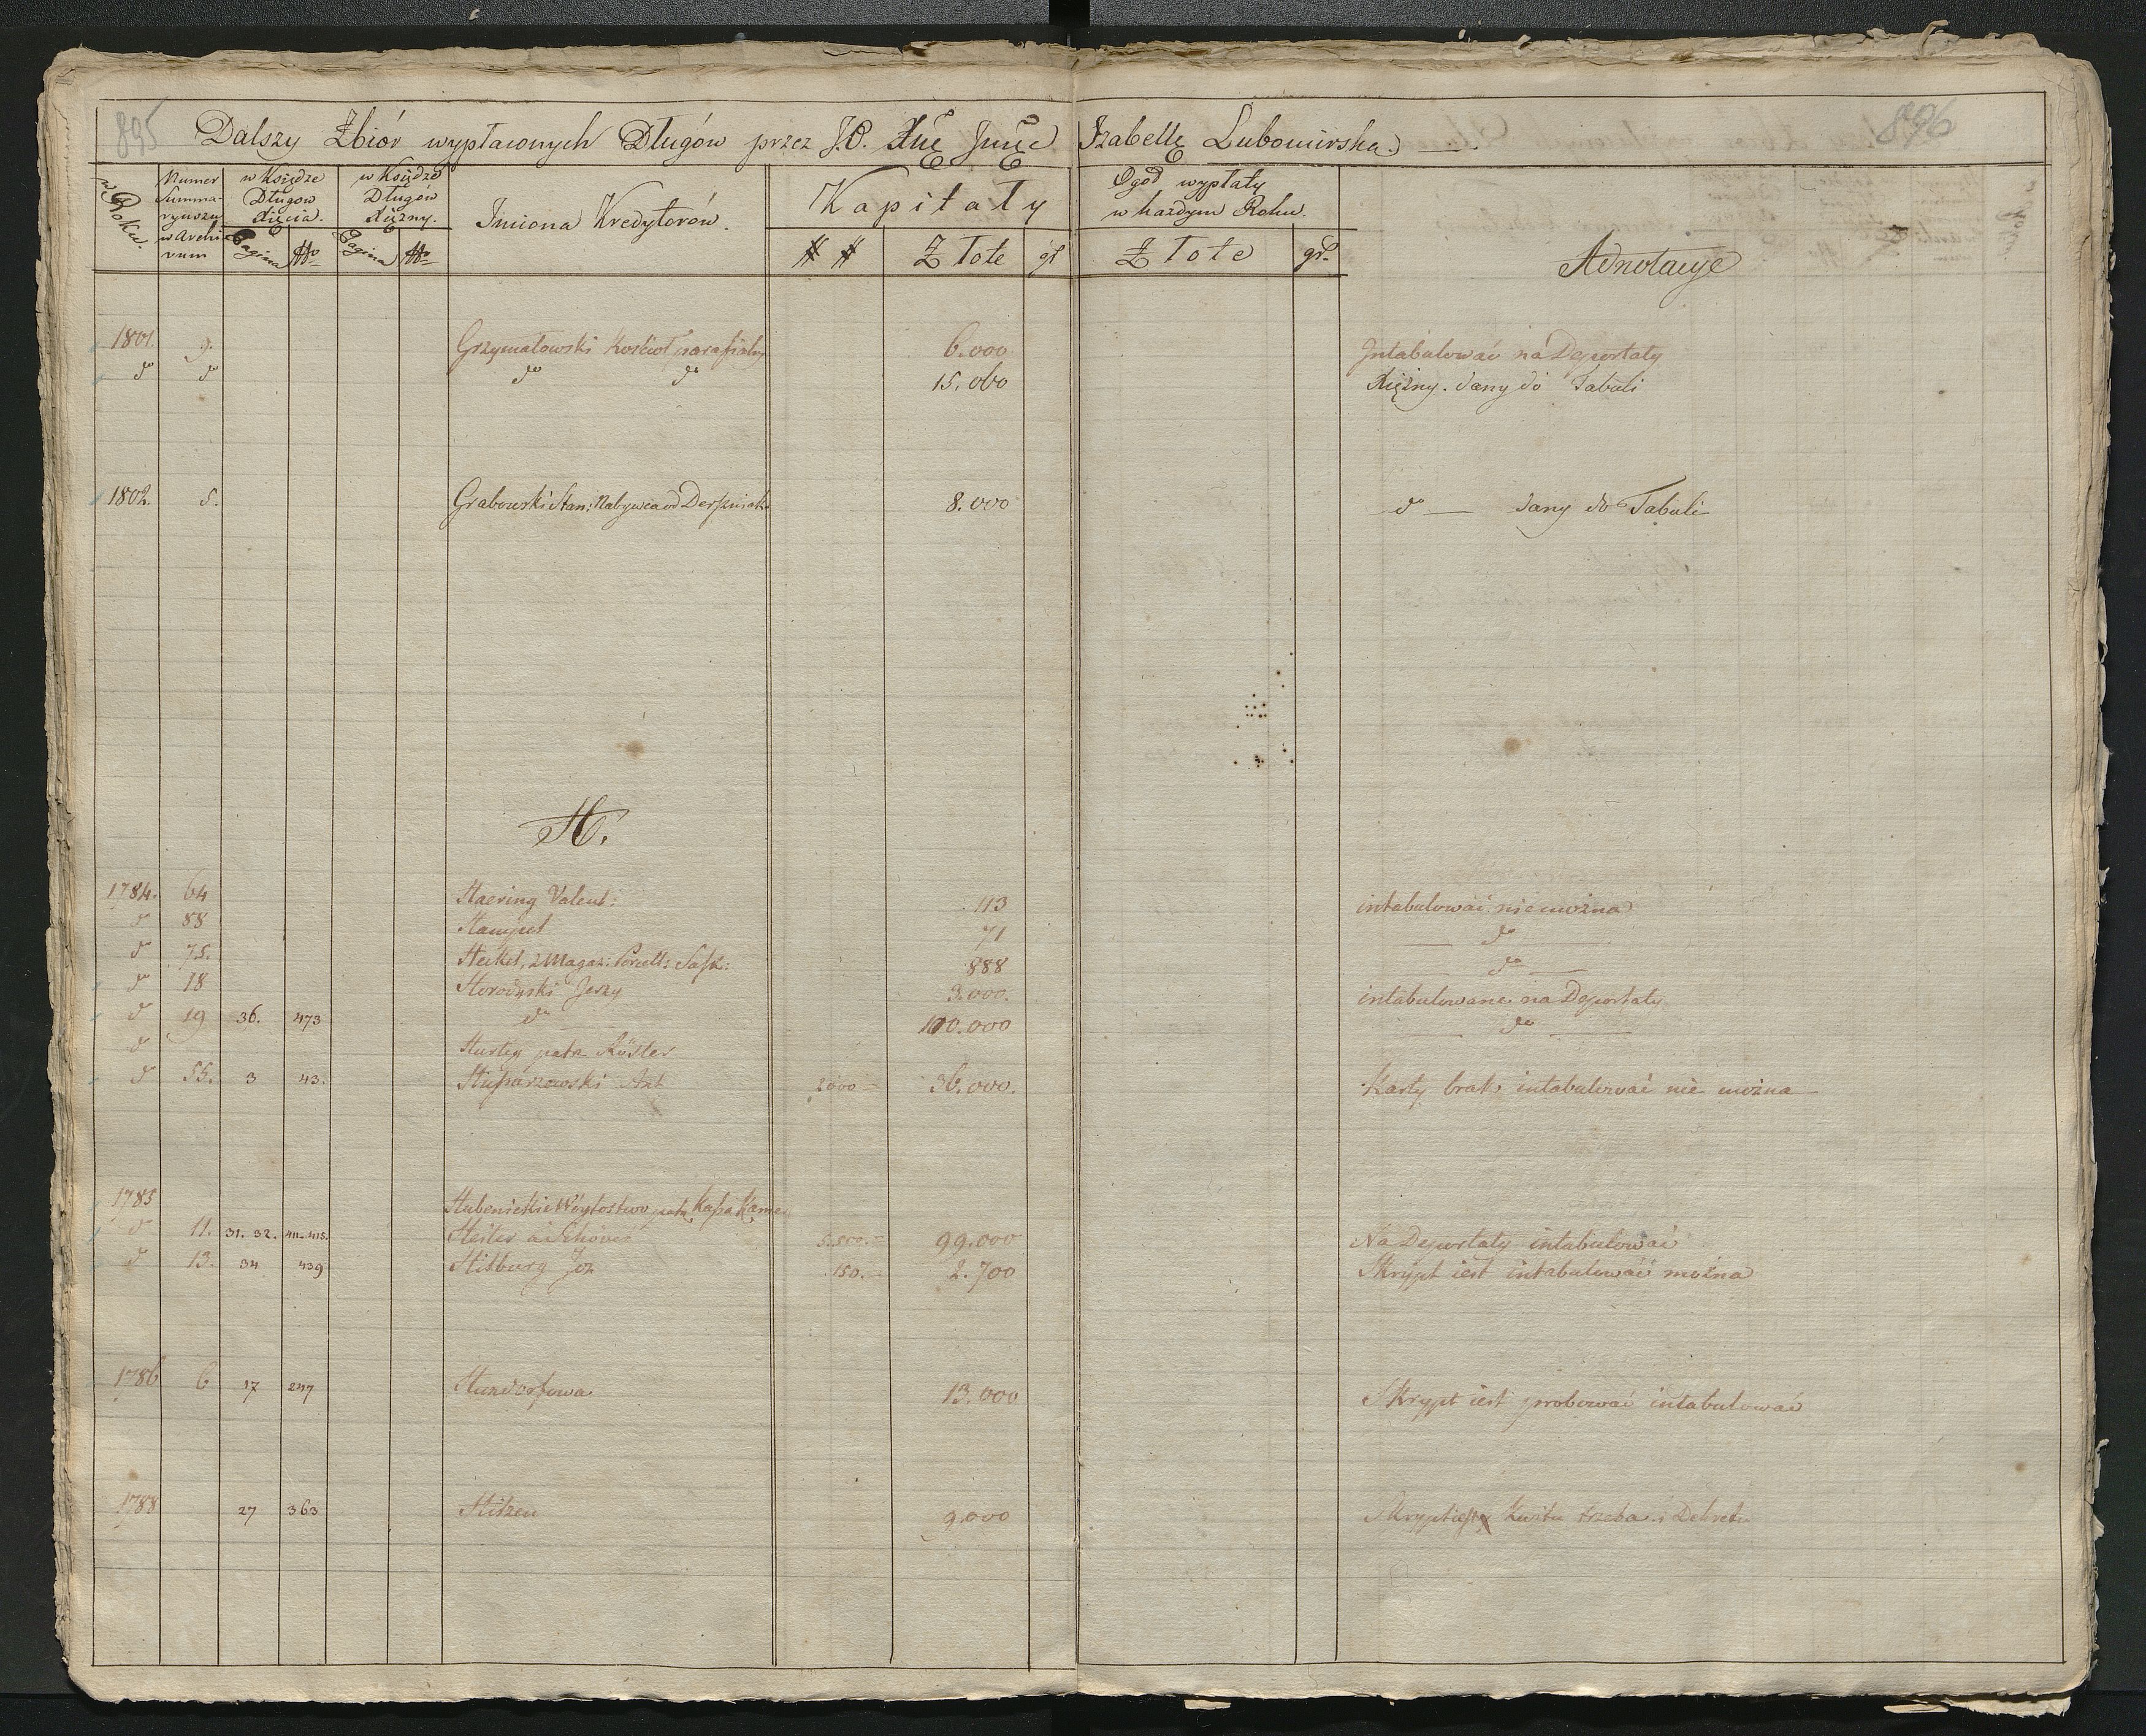 895
896
Dalszy Zbiór wypłaconych Długów przez J.O. Xnę Jmę Izabellę Lubomirską.
w Roku.
Numer Summaryuszu w Archivum
w Księdze Długow Xięcia.
Pagina
No
w Księdze Długów Xiężny.
Pagina
No
Imiona Kredytorów.
Kapitały
# #
Złote
gr
Ogoł wypłaty w każdym Roku.
Złote
gr.
Adnotacye
1801. 9. Grzymałowski Kościoł parafialny 6.000 Intabulować na Deportaty
do do do do 15.060 Xiężny. dany do Tabuli
1802. 5. Grabowski Stan: Nabywca od Derszniak 8.000 do — dany do Tabuli
H.
1784. 64 Haering Valent: 113 intabulować nie można
do 88 Hampel 71 — do —
do 75. Heikel, z Magaz: Porcell: Sask: 888 — do —
do 18 Horodyski Jerzy 3.000. intabulowane na Deportaty
do 19 36. 473 do 100.000 — do —
do Hurtig patrz Köster
do 55. 3 43. Huparzowski Ant 2000 — 36.000. Karty brak, intabulować nie można
1785 Hubenickie Woytostwo patrz Kapa Kamen
do 11. 31. 32. 411. 415. Heiter à Schöner 5.500. — 99.000 Na Deportaty intabulować
do 13. 34 439 Hilburg Joz 150. — 2.700 Skrypt iest intabulować można
1786 6 17 247 Hundorfowa 13.000 Skrypt iest probować intabulować
1788 27 363 Hiszen 9.000 Skrypt iest Kwitu trzeba i Dekretu